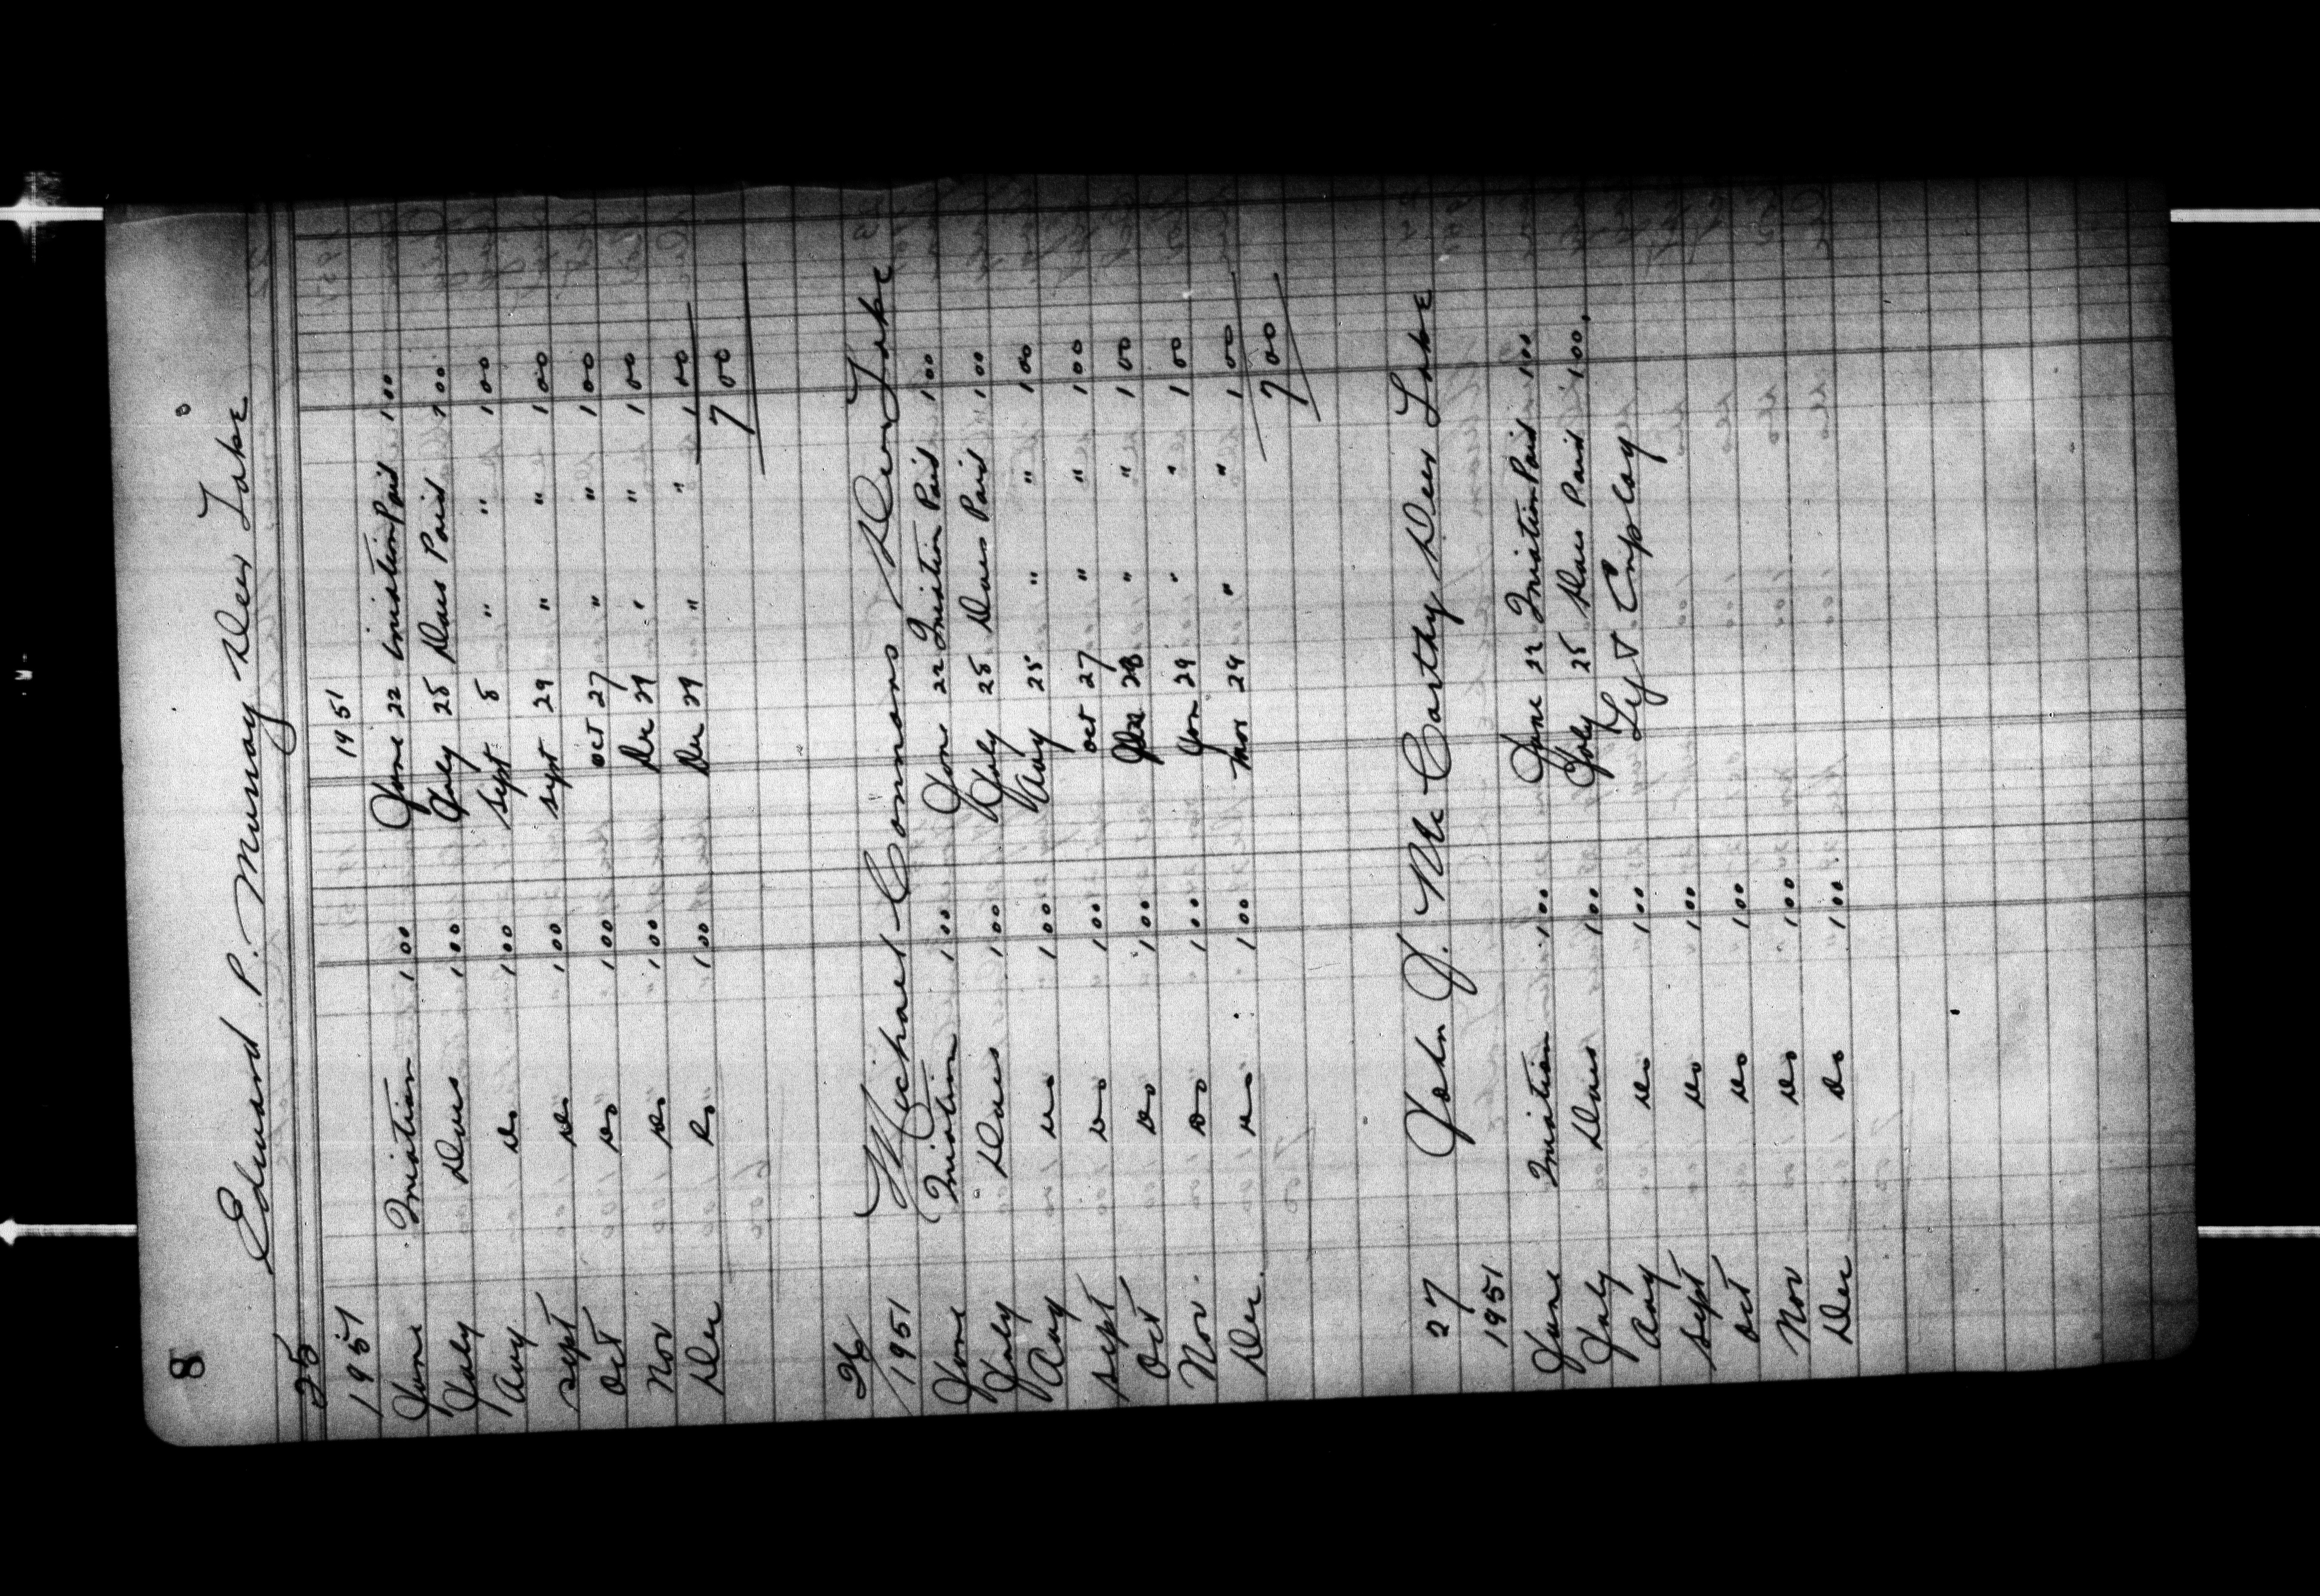 8
Edward P. Murray Deer Lake
25
1951 1951
June Iniation 1 00 June 22 iniation Paid 1 00
July Dues 1 00 July 25 Dues Paid 1 00
Aug Do 1 00 Sept 5 " " 1 00
Sept Do " 1 00 Sept 29 " " 1 00
Oct Do " 1 00 Oct 27 " " 1 00
Nov Do " 1 00 Dec 29 " " 1 00
Dec Do " 1 00 Dec 29 " " 1 00
7 00
26 Michael Connors Deer Lake
1951
June Iniation 1 00 June 22 Iniation Paid 1 00
July Dues 1 00 July 25 Dues Paid 1 00
Aug Do " 1 00 Aug 25 " " 1 00
Sept Do " 1 00 Oct 27 " " 1 00
Oct Do " 1 00 28 " " 1 00
Nov. Do " 1 00 Jan 29 " " 1 00
Dec. Do " 1 00 Mar 29 " " 1 00
7 00
27 John J. Mc Carthy Deer Lake
1951
June Iniation 1 00 June 22 Iniation Paid 1 00
July Dues 1 00 July 25 Dues Paid 1 00.
Aug Do " 1 00 Employ
Sept Do " 1 00
Oct Do 1 00
Nov Do 1 00
Dec Do " 1 00